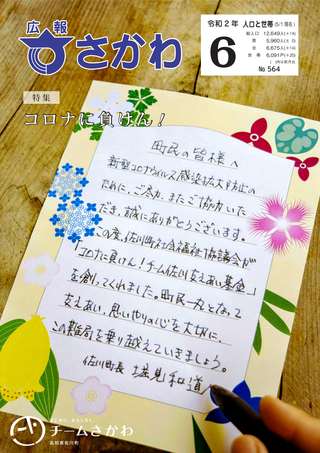 広報
さかわ
令和2年 人口と世帯
6
総人口 12,649人
男 5,960人
女 6,675人
世帯 6,091戸
No 564
特集
コロナに負けん!
町民の皆様へ
新型コロナウイルス感染拡大防止の
ために、ご尽力、またご協力いた
だき、誠にありがとうございます。
この度、佐川町社会福祉協議会が
「コロナに負けん!チーム佐川支えあい基金」
を創ってくれました。町民一丸となって
支えあい、思いやりの心を大切に、
この難局を乗り越えていきましょう。
佐川町長 堀見和道
チームさかわ
高知県佐川町